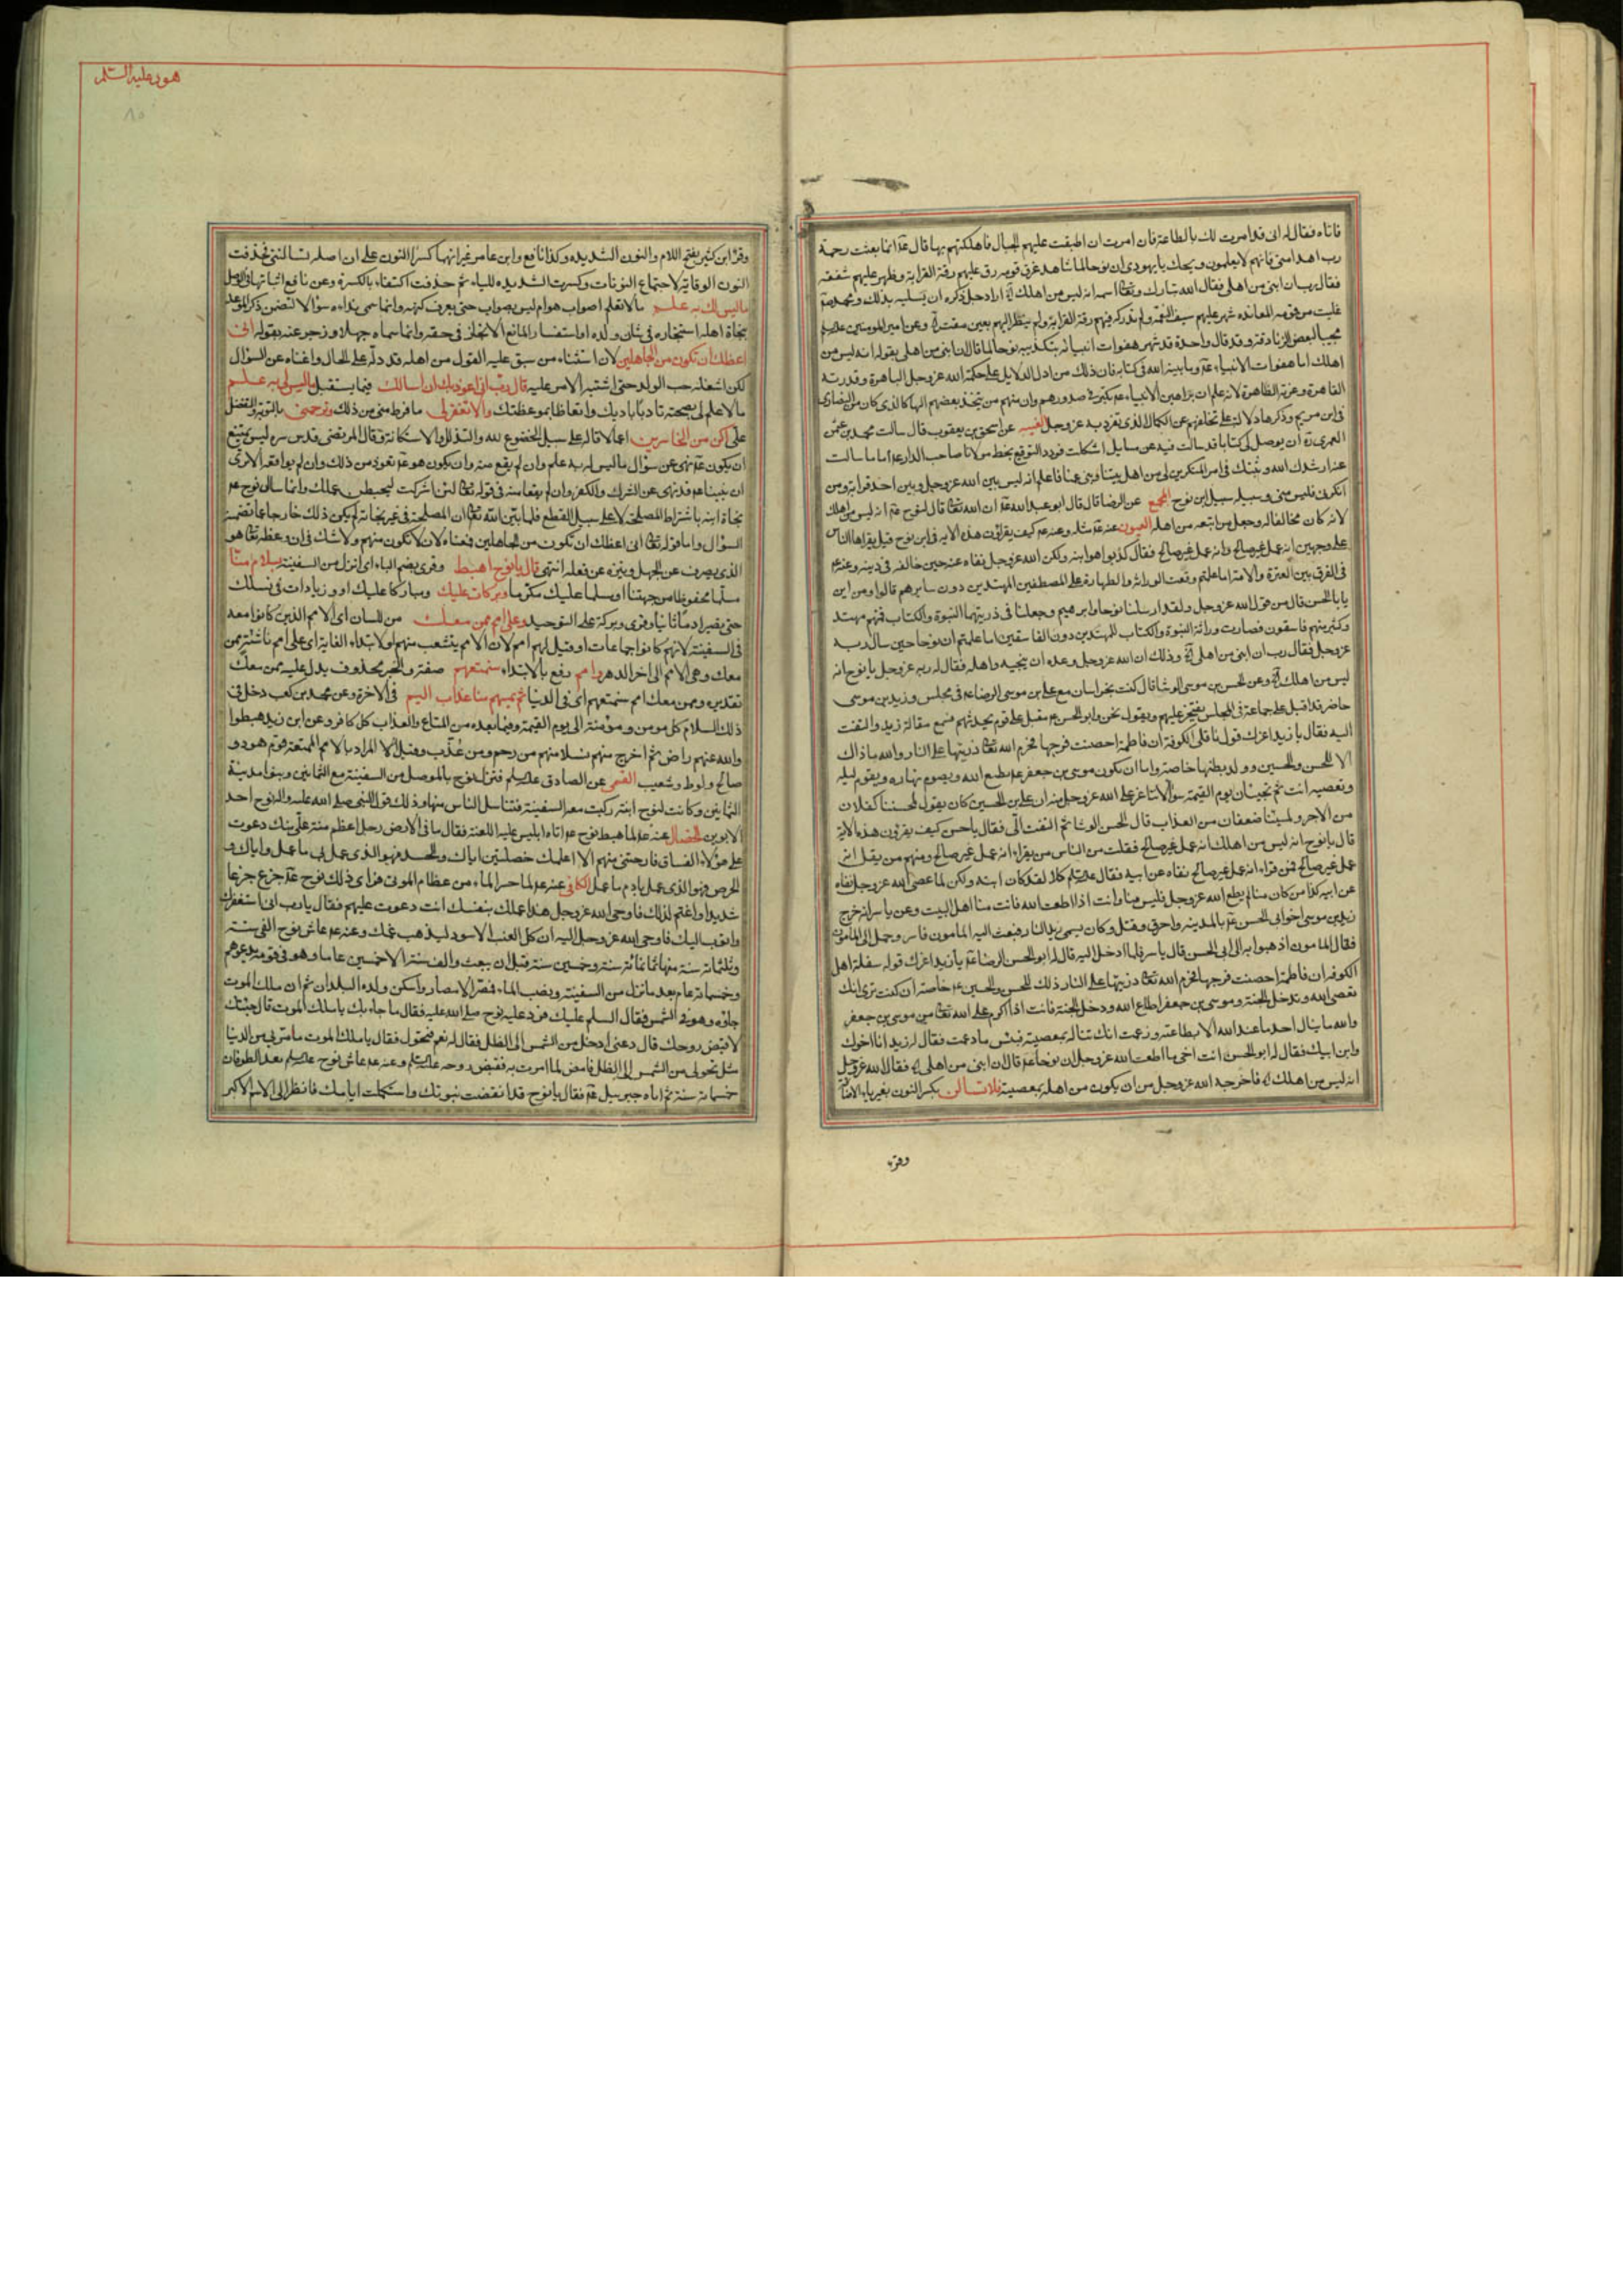 فاتاه فقال له انى قد امرت لك بالطاعة فان امرت ان اطبقت عليهم الجبال فاهلكتهم بها قال عم انما بعثت رحمة
رب اهد امتى فانهم لا يعلمون ويحك يا يهودى ان نوحا لما شاهد غرق قومه رق عليهم رقة القرابة وظهر عليهم شفقة
فقال رب ان ابنى من اهلى فقال الله تبارك وتعا اسمه انه ليس من اهلك اراد جل ذكره ان يسليه بذلك ومحمد ص
غلبت من قومه المعانده شهر عليهم سيف النقمة ولم تدركه فيهم رقة القرابة ولم ينظر اليهم بعين مقت وعن امير المومنين علیه‌السلم
مجيبا لبعض الزنادقة وقد قال واجده قد شهر هفوات انبيائه بتكذيبه نوحا لما قال ان ابنى من اهلى بقوله انه ليس من
اهلك اما هفوات الانبياء عم وما بينه الله فى كتابه فان ذلك من ادل الدلايل على حكمة الله عز وجل الباهرة وقدرته
القاهرة وعزته الظاهرة لانه علم ان براهين الانبياء عم تكبر فى صدور اممهم وان منهم من يتخذ بعضهم الها كالذى كان من النصارى
فى ابن مريم وذكرها دلالة على تخلفهم عن الكمال الذى تفرد به عز وجل الغيبه عن اسحق بن يعقوب قال سالت محمد بن عثمن
العمرى ره ان يوصل لى كتابا قد سالت فيه عن مسايل اشكلت فورد التوقيع بخط مولانا صاحب الدار عم اما ما سالت
عنه ارشدك الله وثبتك فى امر المنكرين لى من اهل بيتنا وبنى عمنا فاعلم انه ليس بين الله عز وجل وبين احد قرابة ومن
انكرنى فليس منى وسبيله سبيل ابن نوح المجمع عن الرضا قال قال ابو عبد الله عم ان الله تعا قال لنوح عم انه ليس من اهلك
لانه كان مخالفا له وجعل من اتبعه من اهله العيون عنه عم مثله وعنه عم كيف يقرؤن هذه الاية فى ابن نوح قيل يقراها الناس
على وجهين انه عمل غير صالح وانه عمل غير صالح فقال كذبوا هو ابنه ولكن الله عز وجل نفاه عنه حين خالفه فى دينه وعنه عم
فى الفرق بين العترة والامة اما علمتم وقعت الوراثة والطهارة على المصطفين المهتدين دون سايرهم قالوا ومن اين
يا بالحسن قال من قول الله عز وجل ولقد ارسلنا نوحا وابرهيم وجعلنا فى ذريتهما النبوة والكتاب فمنهم مهتد
وكثير منهم فاسقون فصارت وراثة النبوة والكتاب للمهتدين دون الفاسقين اما علمتم ان نوحا حين سال ربه
عز وجل فقال رب ان ابنى من اهلى وذلك ان الله عز وجل وعده ان ينجيه واهله فقال له ربه عز وجل يا نوح انه
ليس من اهلك وعن الحسن بن موسى الوشا قال كنت بخراسان مع على بن موسى الرضا عم فى مجلس وزيد بن موسى
حاضر قد اقبل على جماعة فى المجلس يفتخر عليهم ويقول نحن وابو الحسن عم مقبل على قوم يحدثهم فسمع مقالة زيد والتفت
اليه فقال يا زيد اغرك قول ناقلى الكوفة ان فاطمة احصنت فرجها فحرم الله تعا ذريتها على النار والله ما ذاك
الا للحسن والحسين وولد بطنها خاصة واما ان يكون موسى بن جعفر عم يطيع الله ويصوم نهاره ويقوم ليله
وتعصيه انت ثم تجيئان يوم القيمة سواء لانت اعز على الله عز وجل منه ان على بن الحسين كان يقول لمحسننا كفلان
من الاجر ولمسيئنا ضعفان من العذاب قال الحسن الوشا ثم التفت الى فقال يا حسن كيف يقرؤن هذه الاية
قال يا نوح انه ليس من اهلك انه عمل غير صالح فقلت من الناس من يقراء انه عمل غير صالح ومنهم من يقل انه
عمل غير صالح فمن قراء انه عمل غير صالح نفاه عن ابيه فقال علیه‌السلم كلا لقد كان ابنه ولكن لما عصى الله عز وجل نفاه
عن ابيه كذا من كان منا لم يطع الله عز وجل فليس منا وانت اذا اطعت الله فانت منا اهل البيت وعن ياسر انه خرج
زيد بن موسى اخو ابى الحسن عم بالمدينه واحرق وقتل وكان يسمى زيد النار فبعث اليه المامون فاسر وحمل الى المامون
فقال المامون اذهبوا به الى ابى الحسن قال ياسر فلما ادخل اليه قال له ابو الحسن الرضا عم يا زيد اغرك قول سفلة اهل
الكوفه ان فاطمة احصنت فرجها فحرم الله تعا ذريتها على النار ذلك للحسن والحسين عم خاصة ان كنت ترى انك
تعصى الله وتدخل الجنة وموسى بن جعفر اطاع الله ودخل الجنة فانت اذا اكرم على الله تعا من موسى بن جعفر
والله ما ينال احد ما عند الله الا بطاعته وزعمت انك تناله بمعصيته فبئس ما زعمت فقال له زيد انا اخوك
وابن ابيك فقال له ابو الحسن انت اخى ما اطعت الله عز وجل ان نوحا عم قال ان ابنى من اهلى فقال الله عز وجل
انه ليس من اهلك فاخرجه الله عز وجل من ان يكون من اهله بمعصيته فلا تسالن بكسر النون بغير ياء
وقرء
هود عليه السلم
٨٥
وقرا ابن كثير بفتح اللام والنون الشديده وكذا نافع وابن عامر غير انهما كسرا النون على ان اصله تسالننى فحذفت
النون الوقاية لاجتماع النونات وكسرت الشديده للياء ثم حذفت اكتفاء بالكسرة وعن نافع اثباتها فى الوصل
ما ليس لك به علم ما لا تعلم اصواب هو ام ليس بصواب حتى تعرف كنهه وانما سمى نداءه سؤالا لتضمن ذكر الوعد
بنجاة اهله استنجازه فى شان ولده او استفسار المانع للانجاز فى حقه وانما سماه جهلا وزجر عنه بقوله انى
اعظك ان تكون من الجاهلين لان استثناء من سبق عليه القول من اهله قد دله على الحال واغناه عن السؤال
لكن اشغله حب الولد حتى اشتبه الامر عليه قال رب انى اعوذ بك ان اسالك فيما يستقبل ما ليس لى به علم
ما لا علم لى بصحته تادبا بادبك واتعاظا بموعظتك والا تغفر لى ما فرط منى من ذلك وترحمنى بالتوبة والتفضل
على اكن من الخاسرين اعمالا قاله على سبيل الخضوع لله والتذلل والاستكانة وقال المرتضى قدس سره ليس يمتنع
ان يكون عم نهى عن سؤال ما ليس له به علم وان لم يقع منه وان يكون هو عم تعوذ من ذلك وان لم يواقعه الا ترى
ان نبينا عم قد نهى عن الشرك والكفر وان لم يقعا منه فى قوله تعا لئن اشركت ليحبطن عملك وانما سال نوح عم
نجاة ابنه باشتراط المصلحة لا على سبيل القطع فلما بين الله تعا ان المصلحة فى غير نجاته لم يكن ذلك خارجا عما تضمنه
السؤال واما قوله تعا انى اعظك ان تكون من الجاهلين فمعناه لان لا تكون منهم ولا شك فى ان وعظه تعا هو
الذى يصرف عن الجهل وينزه عن فعله انتهى قال يا نوح اهبط وقرى بضم الباء اى انزل من السفينة بسلام منا
مسلما محفوظا من جهتنا او مسلما عليك مكرما وبركات عليك ومباركا عليك او زيادات فى نسلك
حتى يصير ادما ثانيا وقرى وبركة على التوحيد وعلى امم ممن معك من للبيان اى الامم الذين كانوا معه
فى السفينة لانهم كانوا جماعات او قيل لهم امم لان الامم يتشعب منهم او لابتداء الغاية اى على امم ناشئة ممن
معك وهى الامم الى اخر الدهر وامم رفع بالابتداء سنمتعهم صفته والخبر محذوف يدل عليه ممن معك
تقديره وممن معك امم سنمتعهم اى فى الدنيا ثم يمسهم منا عذاب اليم فى الاخرة وعن محمد بن كعب دخل فى
ذلك السلام كل مومن ومؤمنة الى يوم القيمة وفيما بعده من المتاع والعذاب كل كافر وعن ابن زيد هبطوا
والله عنهم راض ثم اخرج منهم نسلا منهم من رحم ومن عذب وقيل المراد بالامم الممتعة قوم هود و
صالح ولوط وشعيب القمى عن الصادق علیه‌السلم فنزل نوح بالموصل من السفينة مع الثمانين وبنوا مدينة
الثمانين وكانت لنوح ابنة ركبت معه السفينة فتناسل الناس منها وذلك قول النبى صلى الله عليه واله نوح احد
الابوين الخصال عنه عم لما هبط نوح عم اتاه ابليس عليه اللعنة فقال ما فى الارض رجل اعظم منة على منك دعوت
على هؤلاء الفساق فارحتنى منهم الا اعلمك خصلتين اياك والحسد فهو الذى عمل بى ما عمل واياك و
الحرص فهو الذى عمل بادم ما عمل الكافى عنه عم لما حسر الماء من عظام الموتى فراى ذلك نوح عم جزع جزعا
شديدا واغتم لذلك فاوحى الله عز وجل هذا عملك بنفسك انت دعوت عليهم فقال يا رب انى استغفرك
واتوب اليك فاوحى الله عز وجل اليه ان كل العنب الاسود ليذهب غمك وعنه عم عاش نوح الفى سنة
وثلثمائة سنة منها ثمانمائة سنة وخمسين سنة قبل ان يبعث والف سنة الا خمسين عاما وهو فى قومه يدعوهم
وخمسمائة عام بعد ما نزل من السفينة ونضب الماء فمصر الامصار واسكن ولده البلدان ثم ان ملك الموت
جاءه وهو فى الشمس فقال السلم عليك فرد عليه نوح صلى الله عليه فقال ما جاء بك يا ملك الموت قال جئتك
لاقبض روحك قال دعنى ادخل من الشمس الى الظل فقال له نعم فتحول فقال يا ملك الموت ما مر بى من الدنيا
مثل تحولى من الشمس الى الظل فامض لما امرت به فقبض روحه علیه‌السلم وعنه عم عاش نوح علیه‌السلم بعد الطوفان
خمسمائة سنة ثم اتاه جبرئيل عم فقال يا نوح قد انقضت نبوتك واستكملت ايامك فانظر الى الاسم الاكبر